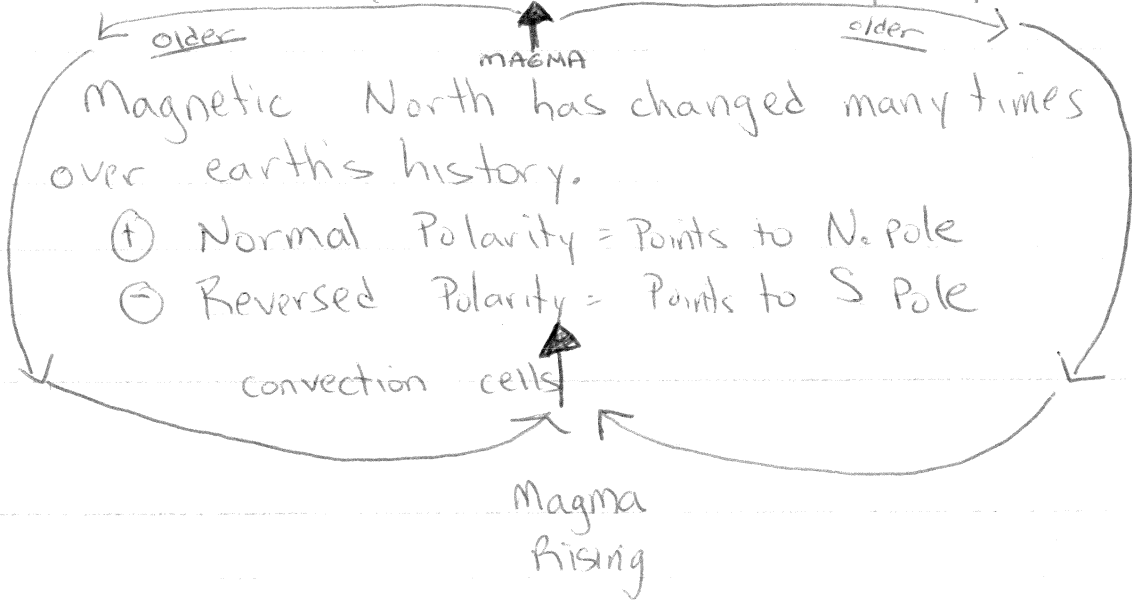 older older
MAGMA
Magnetic North has changed many times
over earth's history.
⊕ Normal Polarity = Points to N. pole
⊖ Reversed Polarity = Points to S Pole
convection cells
Magma
Rising